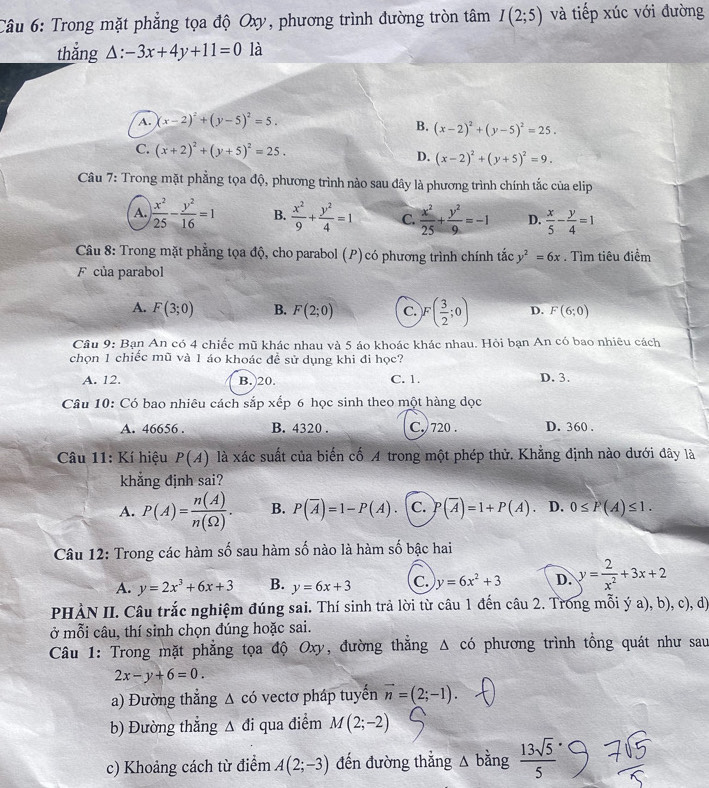 Câu 6: Trong mặt phẳng tọa độ Oxy, phương trình đường tròn tâm I(2;5) và tiếp xúc với đường
thẳng Δ:-3x+4y+11=0 là
A. (x-2)²+(y-5)²=5. B. (x-2)²+(y-5)²=25.
C. (x+2)²+(y+5)²=25. D. (x-2)²+(y+5)²=9.
Câu 7: Trong mặt phẳng tọa độ, phương trình nào sau đây là phương trình chính tắc của elip
A. x²/25 - y²/16 = 1 B. x²/9 + y²/4 = 1 C. x²/25 + y²/9 = -1 D. x/5 - y/4 = 1
Câu 8: Trong mặt phẳng tọa độ, cho parabol (P) có phương trình chính tắc y² = 6x. Tìm tiêu điểm
F của parabol
A. F(3;0) B. F(2;0) C. F(3/2;0) D. F(6;0)
Câu 9: Bạn An có 4 chiếc mũ khác nhau và 5 áo khoác khác nhau. Hỏi bạn An có bao nhiêu cách
chọn 1 chiếc mũ và 1 áo khoác để sử dụng khi đi học?
A. 12. B. 20. C. 1. D. 3.
Câu 10: Có bao nhiêu cách sắp xếp 6 học sinh theo một hàng dọc
A. 46656. B. 4320. C. 720. D. 360.
Câu 11: Kí hiệu P(A) là xác suất của biến cố A trong một phép thử. Khẳng định nào dưới đây là
khẳng định sai?
A. P(A)=n(A)/n(Ω). B. P(A̅)=1-P(A). C. P(A̅)=1+P(A). D. 0≤P(A)≤1.
Câu 12: Trong các hàm số sau hàm số nào là hàm số bậc hai
A. y=2x³+6x+3 B. y=6x+3 C. y=6x²+3 D. y=2/x²+3x+2
PHẦN II. Câu trắc nghiệm đúng sai. Thí sinh trả lời từ câu 1 đến câu 2. Trong mỗi ý a), b), c), d)
ở mỗi câu, thí sinh chọn đúng hoặc sai.
Câu 1: Trong mặt phẳng tọa độ Oxy, đường thẳng Δ có phương trình tổng quát như sau
2x-y+6=0.
a) Đường thẳng Δ có vectơ pháp tuyến n⃗=(2;-1).
b) Đường thẳng Δ đi qua điểm M(2;-2) S
c) Khoảng cách từ điểm A(2;-3) đến đường thẳng Δ bằng 13√5/5. 7√5/5